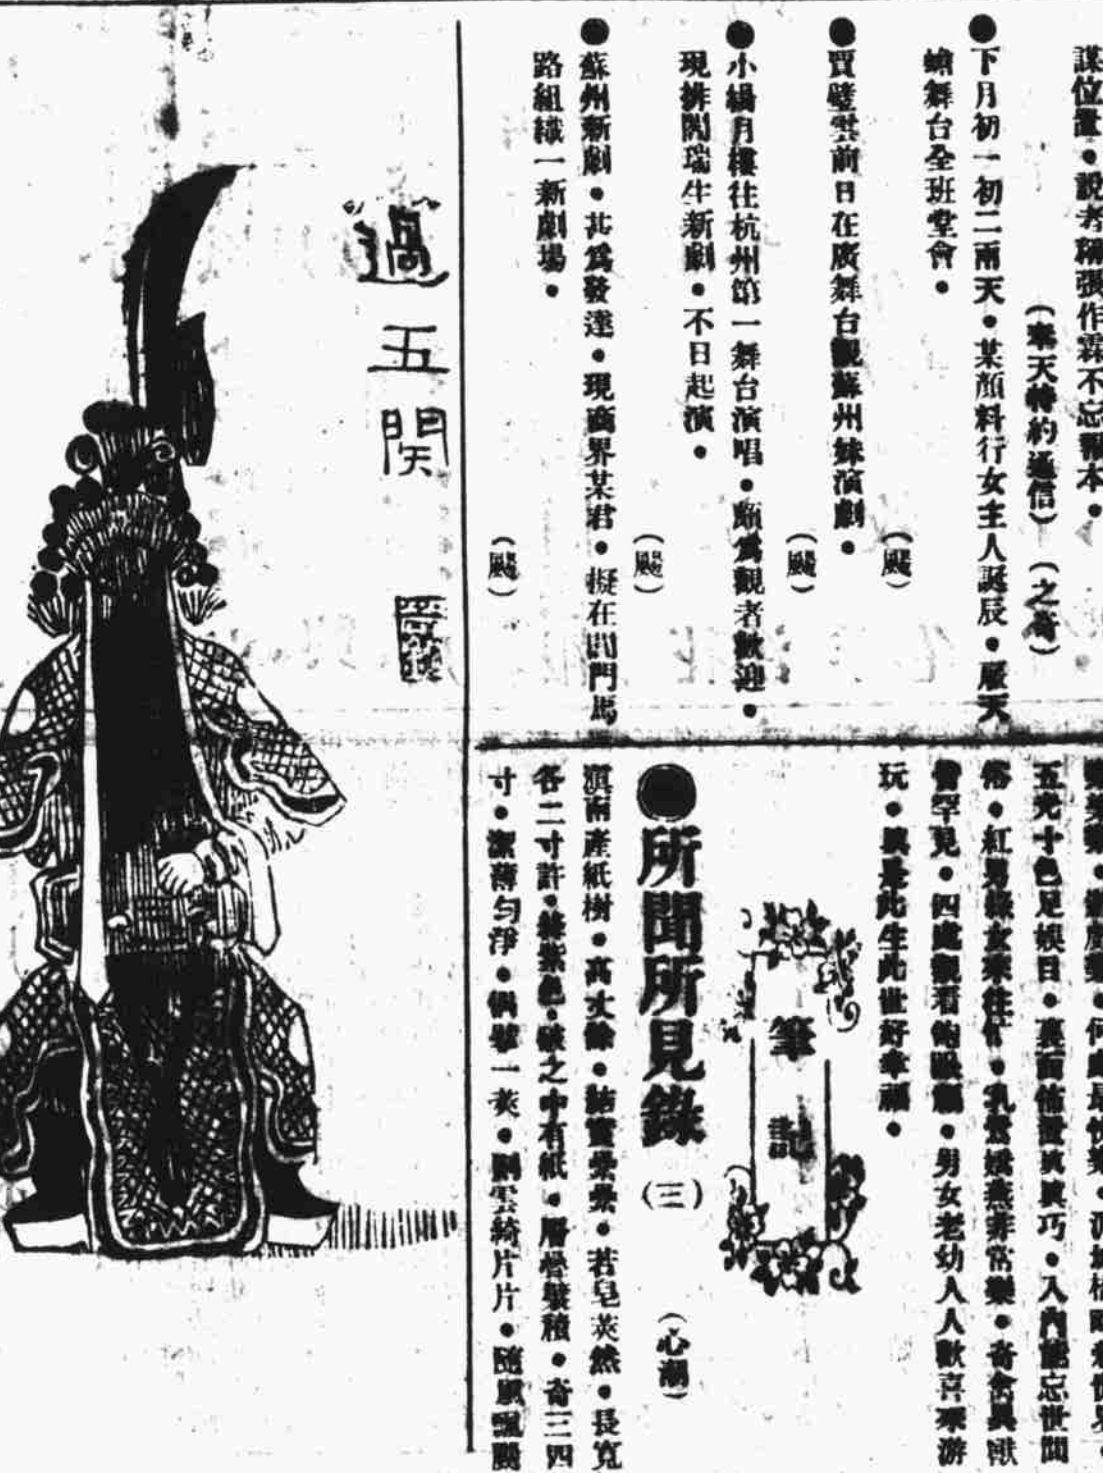 謀位置●說者稱張作霖不忘報本●
(奉天特約通信) (之奇)
●下月初一初二兩天●某顏料行女主人誕辰●雇天
蟾舞台全班堂會● (颺)
●賈璧雲前日在廣舞台觀蘇州妹演劇● (颺)
●小楊月樓往杭州第一舞台演唱●頗為觀者歡迎●
現排閻瑞生新劇●不日起演● (颺)
●蘇州新劇●甚為發達●現商界某君●擬在閶門馬
路組織一新劇場● (颺)
過五関
五光十色足娛目●裏面佈置真真巧●入內能忘世間
俗●紅男綠女來往忙●乳鶯嬌燕非常樂●奇禽異獸
皆罕見●四處觀看飽眼福●男女老幼人人歡喜來游
玩●真是此生此世好幸福●
筆記
●所聞所見錄(三)
(心潮)
滇南產紙樹●高丈餘●結實纍纍●若皂莢然●長寬
各二寸許●絳紫色●破之中有紙●層疊襞積●奇三四
寸●潔薄勻淨●偶擘一莢●則雲綺片片●隨風飄颺